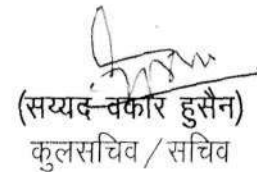 (सय्यद वकार हुसैन)
कुलसचिव / सचिव